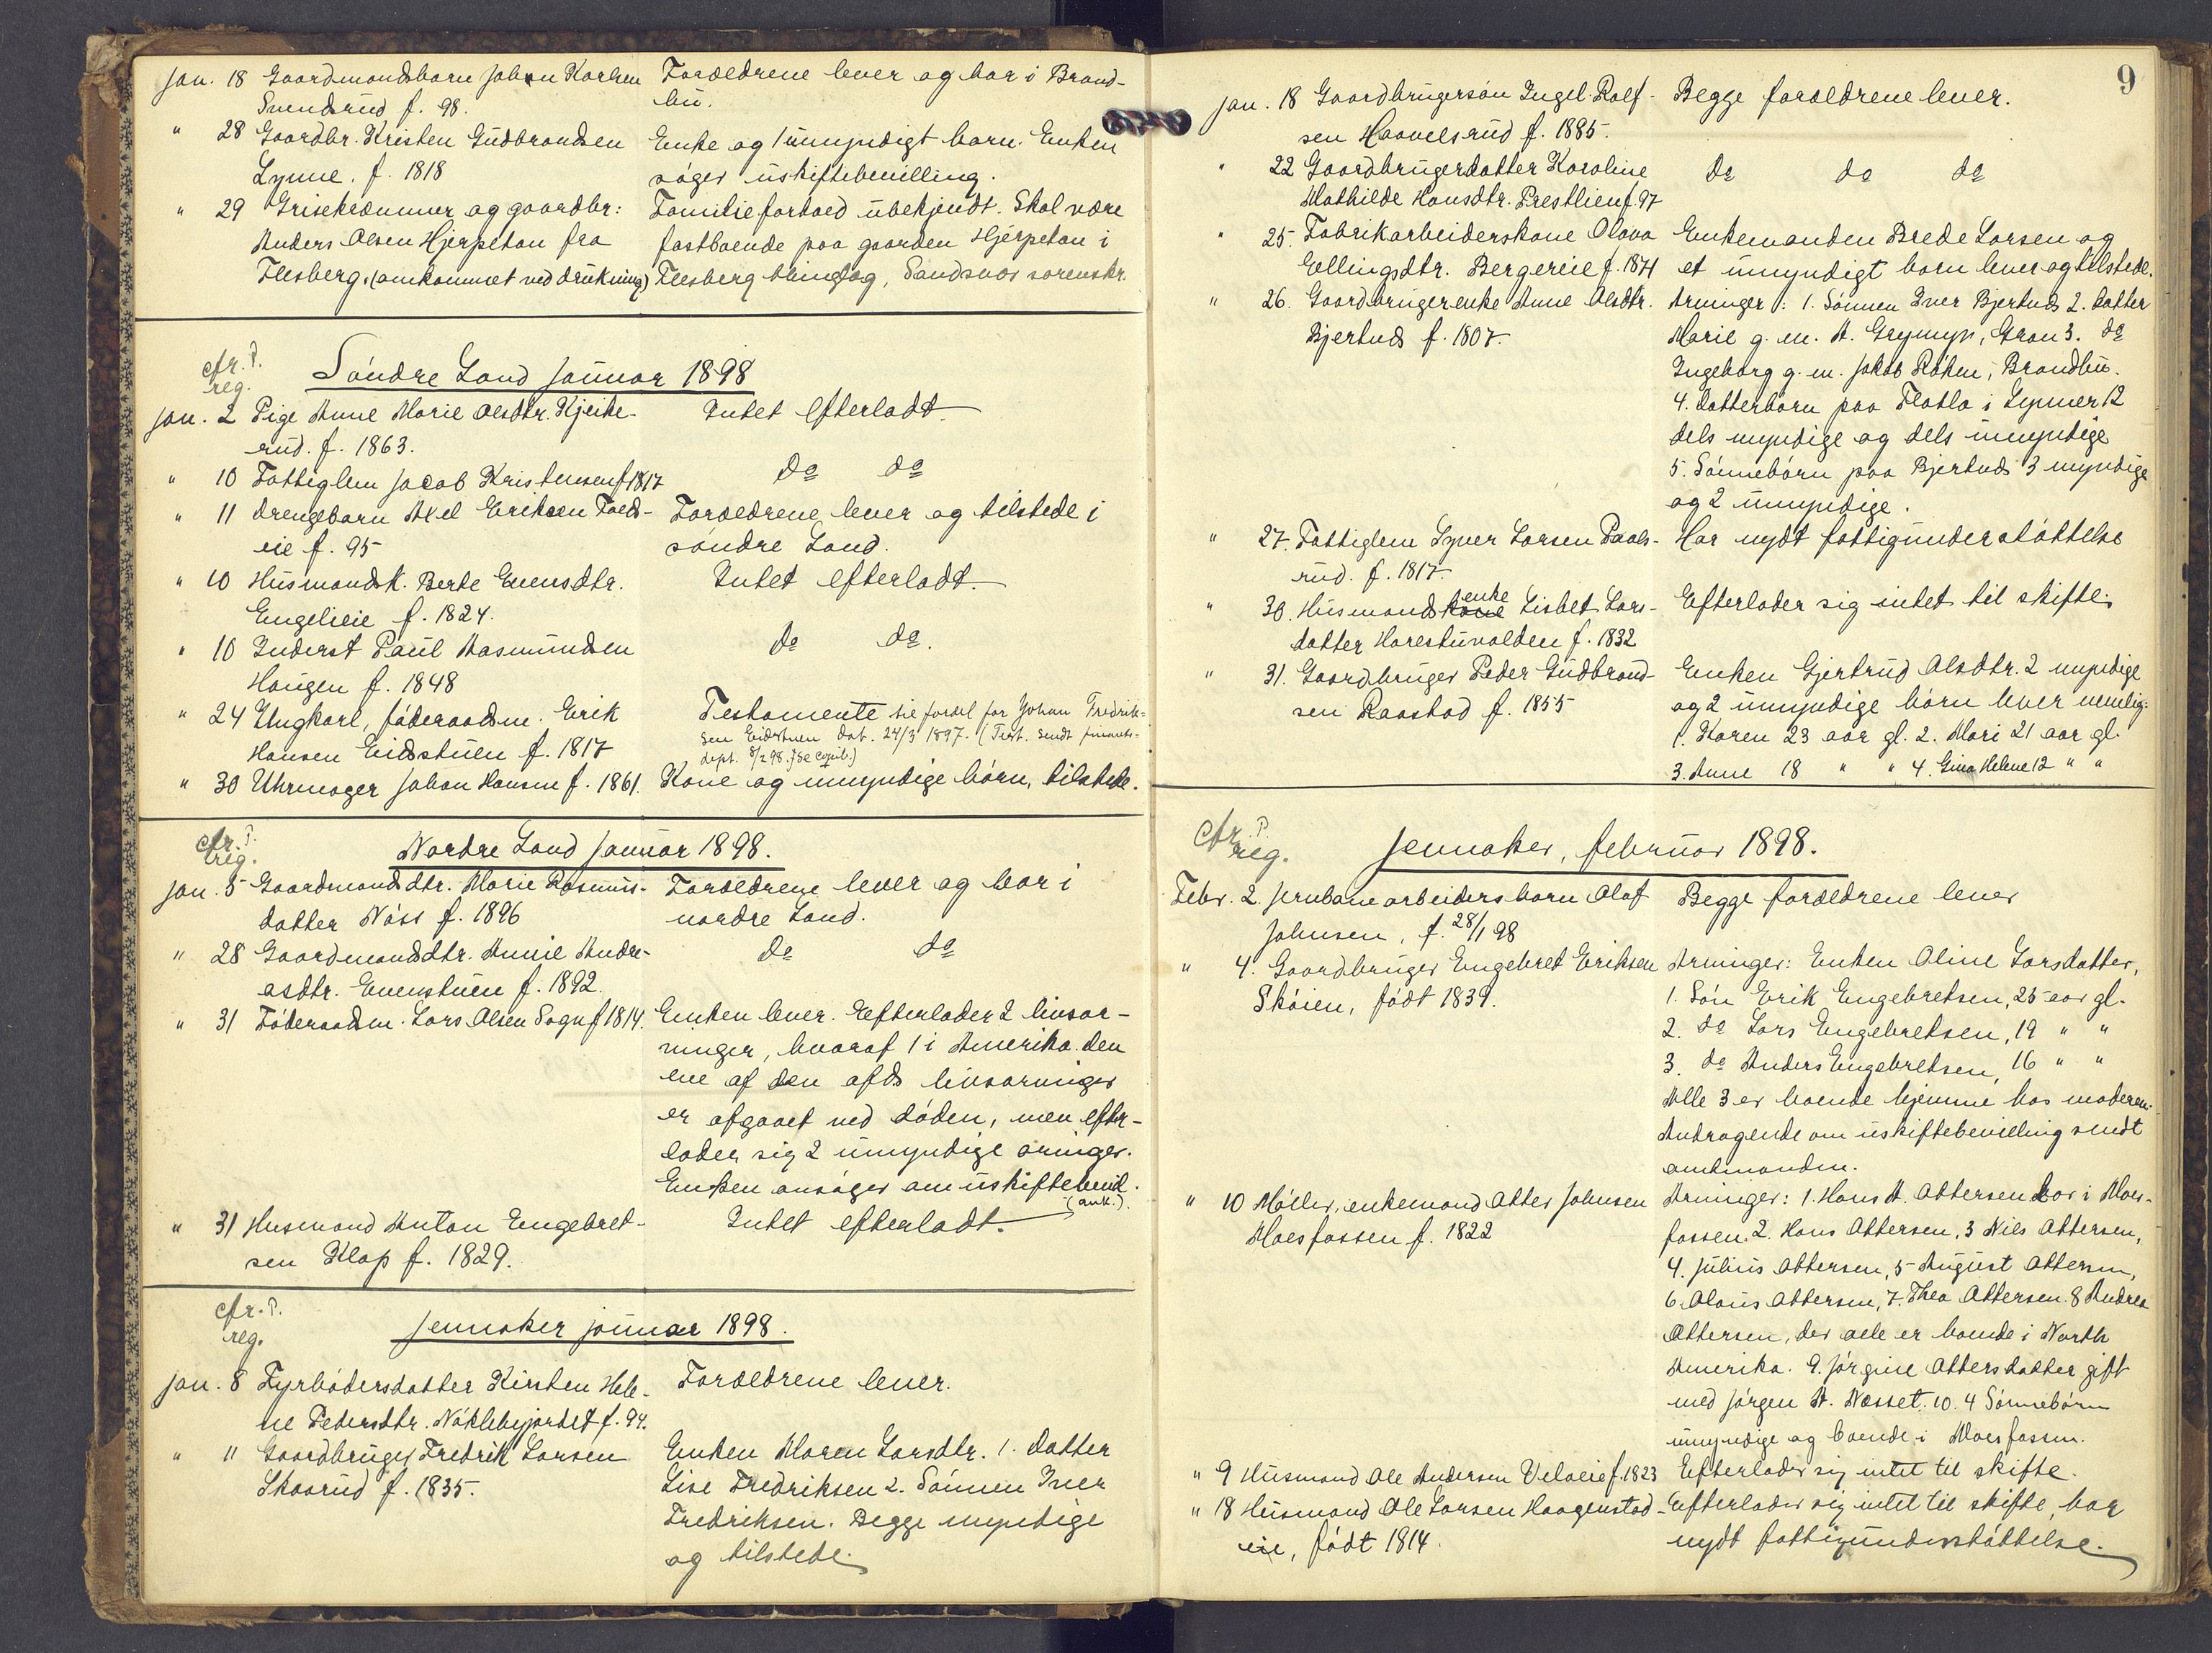 Jan. 18 Gaardmandsbarn Johan Karlsen Forældrene lever og bor i Brand-
Svendsrud f. 98. bu.
" 28 Gaardbr. Kristen Gudbrandsen Enke og 1 umyndigt barn. Enken
Lynne. f. 1818 søger uskiftebevilling.
" 29 Grisekræmmer og gaardbr: Familieforhold ubekjendt. Skal være
Anders Olsen Hjerpetan fra fastboende paa gaarden Hjerpetan i
Flesberg. (omkommet ved drukning) Flesberg thinglag, Sandsvær sorenskr.
cfr. P.
reg. Søndre Land januar 1898
Jan. 2 Pige Anne Marie Olsdtr. Kjeike- Intet efterladt
rud. f. 1863.
" 10 Fattiglem Jacob Kristensen f 1817 do do
" 11 Drengebarn Axel Eriksen Foeds- Forældrene lever og tilstede i
eie f. 95 søndre Land.
" 10 Husmandsk. Berte Evensdtr. Intet efterladt
Engelieie f. 1824.
" 10 Inderst Paul Aasmundsen do do.
Haugen f. 1848
" 24 Ungkarl, føderaadsm. Erik Testamente til fordel for Johan Fredrik-
Hansen Eidstuen f. 1817 sen Eidstuen dat. 24/3 1897. (Test. sendt finants-
dept. 8/2 98. se copib.)
" 30 Uhrmager Johan Hansen f. 1861. Kone og umyndige børn, tilstede.
cfr. P.
reg. Nordre Land januar 1898.
Jan. 5 Gaardmandsdtr. Marie Rasmus- Forældrene lever og bor i
datter Nøss f. 1896 nordre Land.
" 28 Gaardmandsdtr. Annie Andre- do do
asdtr. Evenstuen f. 1892.
" 31 Føderaadsm. Lars Olsen Sogn f 1814. Enken lever. Efterlader 2 livsar-
vinger, hvoraf 1 i Amerika. den
ene af den afds livsarvinger
er afgaaet ved døden, men efter-
lader sig 2 umyndige arvinger.
Enken ansøger om uskiftebevil.
(ank.).
" 31 Husmand Anton Engebret- Intet efterladt.
sen Klop f. 1829.
cfr. P.
reg. Jevnaker januar 1898.
Jan. 8 Fyrbødersdatter Kirsten Hele- Forældrene lever.
ne Pedersdtr. Nøklebyjordet f. 94.
" 11 Gaardbruger Fredrik Larsen Enken Maren Larsdtr. 1. datter
Skaarud f. 1835. Lise Fredriksen 2. Sønnen Iver
Fredriksen. Begge myndige
og tilstede.
9
Jan. 18 Gaardbrugersøn Ingel Rolf- Begge forældrene lever.
sen Haavelsrud f. 1885.
" 22 Gaardbrugerdatter Karoline do do do
Mathilde Hansdtr. Prestlien f. 97
" 25. Fabrikarbeiderskone Olava Enkemanden Brede Larsen og
Ellingsdtr. Bergereie f. 1871 et umyndigt barn lever og tilstede.
" 26. Gaardbrugerenke Anne Olsdtr. Arvinger: 1. Sønnen Iver Bjertnds 2. datter
Bjertnds f. 1807. Marie g. m. A. Grymyr, Gran 3. do
Ingeborg g. m. Jakob Røken, Brandbu.
4. Datterbørn paa Flatla i Lynner 12
dels myndige og dels umyndige
5. Sønnebørn paa Bjertnds 3 myndige
og 2 umyndige.
" 27. Fattiglem Syver Larsen Paals- Har nydt fattigunderstøttelse
rud. f. 1817.
" 30. Husmandskone enke Lisbet Lars- Efterlader sig intet til skifte.
datter Harestuvolden f. 1832
" 31. Gaardbruger Peder Gudbrand- Enken Gjertrud Olsdtr. 2 myndige
sen Raastad f. 1855 og 2 umyndige børn lever nemlig:
1. Karen 23 aar gl. 2. Mari 21 aar gl.
3. Anne 18 " " 4. Gina Helene 12 " "
Cfr. P.
reg. Jevnaker, februar 1898.
Febr. 2. Jernbanearbeidersbarn Olaf Begge forældrene lever
Johnsen, f. 28/1 98
" 4. Gaardbruger Engebret Eriksen Arvinger: Enken Oline Larsdatter,
Skøien, født 1839. 1. Søn Erik Engebretsen, 25 aar gl.
2. do Lars Engebretsen, 19 " "
3. do Anders Engebretsen, 16 " "
Alle 3 er boende hjemme hos moderen.
Andragende om uskiftebevilling sendt
amtmanden.
" 10 Møller, enkemand Otter Johnsen Arvinger: 1. Hans A. Ottersen bor i Moes-
Moesfossen f. 1822 fossen. 2. Hans Ottersen, 3 Nils Ottersen,
4. Julius Ottersen, 5 August Ottersen,
6. Olaus Ottersen, 7. Thea Ottersen. 8 Andrea
Ottersen, der alle er boende i North
Amerika. 9. Jørgine Ottersdatter gift
med Jørgen A. Næsset. 10. 4 Sønnebørn
umyndige og boende i Moesfossen.
" 9 Husmand Ole Andersen Veloeie f. 1823 Efterlader sig intet til skifte.
" 18 Husmand Ole Larsen Haagenstad- Efterlader sig intet til skifte, har
eie, født 1814. nydt fattigunderstøttelse.